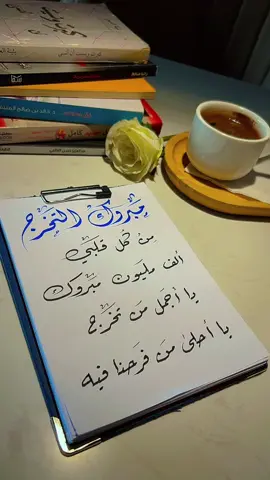 مبروك التخرج
من كل قلبي
ألف مليون مبروك
يا أجمل من تخرج
يا أحلى من فرحنا فيه